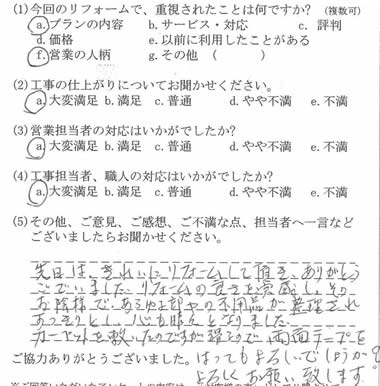 (1)今回のリフォームで、重視されたことは何ですか? (複数可)
a.プランの内容 b.サービス・対応 c. 評判
d.価格 e.以前に利用したことがある
f.営業の人柄 g.その他 ( )
(2)工事の仕上がりについてお聞かせください。
a.大変満足 b.満足 c.普通 d.やや不満 e.不満
(3)営業担当者の対応はいかがでしたか?
a.大変満足 b.満足 c.普通 d.やや不満 e.不満
(4)工事担当者、職人の対応はいかがでしたか?
a.大変満足 b.満足 c.普通 d.やや不満 e.不満
(5)その他、ご意見、ご感想、ご不満な点、担当者へ一言など
ございましたらお聞かせください。
先日は、きれいにリフォームして頂き、ありがとう
ございました。リフォームの良さを実感し、その
お陰様で、あらゆる部やの不用品が整理され
あっさりとし、心も晴天となりました。
カーペットを敷いたのですが 両面テープを
はってもよろしいでしょうか?
ご協力ありがとうございました。
よろしくお願い致します